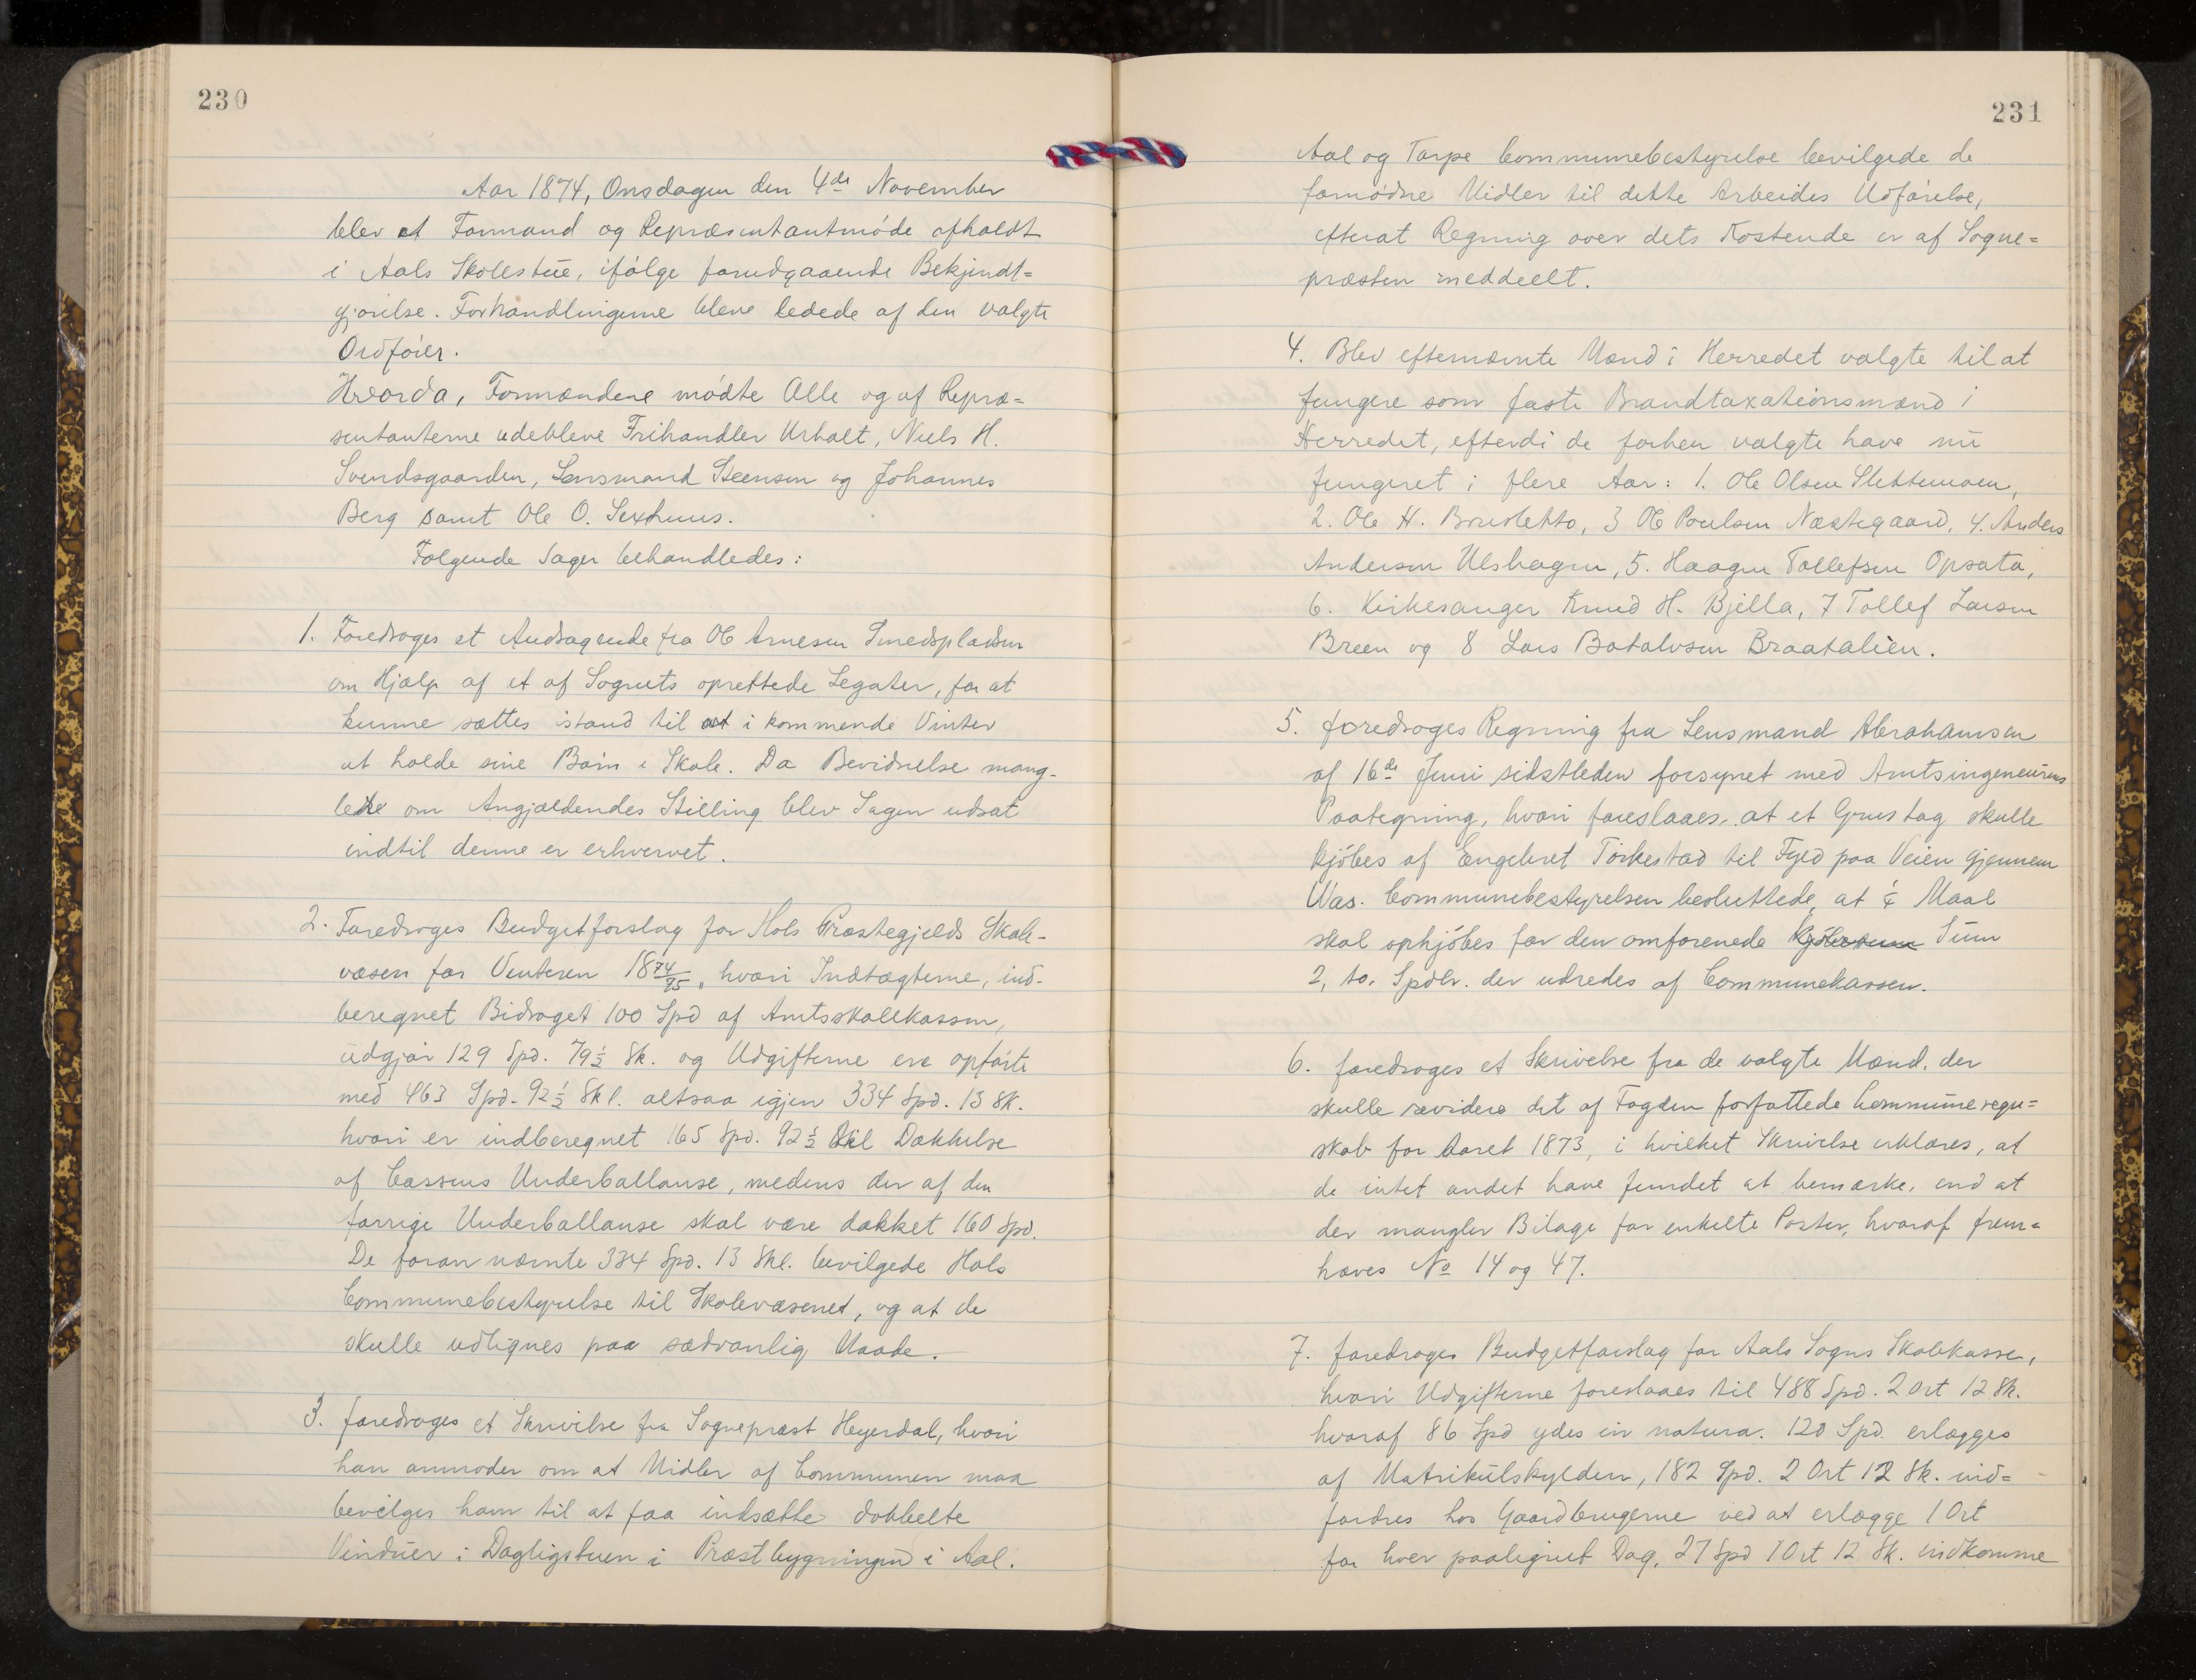 230
Aar 1874, Onsdagen den 4de November
blev et Formand og Repræsentantmøde afholdt
i Aals Skolestue, ifølge forudgaaende Bekjendt=
gjørelse. Forhandlingerne bleve ledede af den valgte
Ordfører.
Hvorda, Formændene mødte Alle og af Repræ=
sentanterne udebleve Frihandler Urhalt, Niels H.
Svendsgaarden, Lensmand Steensen og Johannes
Berg samt Ole O. Sexhuus.
Følgende Sager behandledes:
1. Foredroges et Andragende fra Ole Arnesen Smedspladsen
om Hjælp af et af Sognets oprettede Legater, for at
kunne sættes istand til at i kommende Vinter
at holde sine Børn i Skole. Da Bevidnelse mang-
lede om Angjældendes Stilling blev Sagen udsat
indtil denne er erhvervet.
2. Foredroges Budgetforslag for Hols Præstegjelds Skole-
væsen for Vinteren 1874/75, hvori Indtægterne, ind-
beregnet Bidraget 100 Spd af Amtsskolekassen,
udgjør 129 Spd. 79½ Sk. og Udgifterne ere opførte
med 463 Spd. 92½ Skl. altsaa igjen 334 Spd. 13 Sk.
hvori er indberegnet 165 Spd. 92½ til Dækkelse
af Cassens Underballanse, medens der af den
forrige Underballanse skal være dækket 160 Spd.
De foran nævnte 334 Spd. 13 Skl. bevilgede Hols
Communebestyrelse til Skolevæsenet, og at de
skulle udlignes paa sædvanlig Maade.
3. foredroges et Skrivelse fra Sognepræst Heyerdal, hvori
han anmoder om at Midler af Communen maa
bevilges ham til at faa indsætte dobbelte
Vinduer i Dagligstuen i Præstbygningen i Aal.
231
Aal og Torpe Communebestyrelse bevilgede de
fornødne Midler til dette Arbeides Udførelse,
efterat Regning over dets Kostende er af Sogne=
præsten meddeelt.
4. Blev efternævnte Mænd i Herredet valgte til at
fungere som faste Brandtaxationsmænd i
Herredet, efterdi de forhen valgte have nu
fungeret i flere Aar: 1. Ole Olsen Slettemoen,
2. Ole H. Brusletto, 3 Ole Poulsen Næstegaard, 4. Anders
Andersen Ulshagen, 5. Haagen Tollefsen Opsata,
6. Kirkesanger Knud H. Bjella, 7 Tollef Larsen
Breen og 8 Lars Botolvsen Braatalien.
5. foredroges Regning fra Lensmand Abrahamsen
af 16de Juni sidstleden forsynet med Amtsingeneurens
Paategning, hvori foreslaaes, at et Grustag skulle
kjøbes af Engebret Torkestad til Fyld paa Veien gjennem
Was. Communebestyrelsen besluttede, at ¼ Maal
skal ophjøbes for den omforenede Kjøbesum Sum
2, to. Spdlr. der udredes af Communekassen.
6. foredroges et Skrivelse fra de valgte Mænd, der
skulle revidere det af Fogden forfattede Communeregn=
skab for Aaret 1873, i hvilket Skrivelse erklæres, at
de intet andet have fundet at bemærke, end at
der mangler Bilage for enkelte Poster, hvoraf frem=
hæves No 14 og 47.
7. foredroges Budgetforslag for Aals Sogns Skolekasse,
hvori Udgifterne foreslaaes til 488 Spd. 2 Ort 12 Sk.
hvoraf 86 Spd ydes in natura. 120 Spd. erlægges
af Matrikulskylden, 182 Spd. 2 Ort 12 Sk. ind=
fordres hos Gaardbrugerne ved at erlægge 1 Ort
for hver paalignet Dag, 27 Spd 1 Ort 12 Sk. indkomme